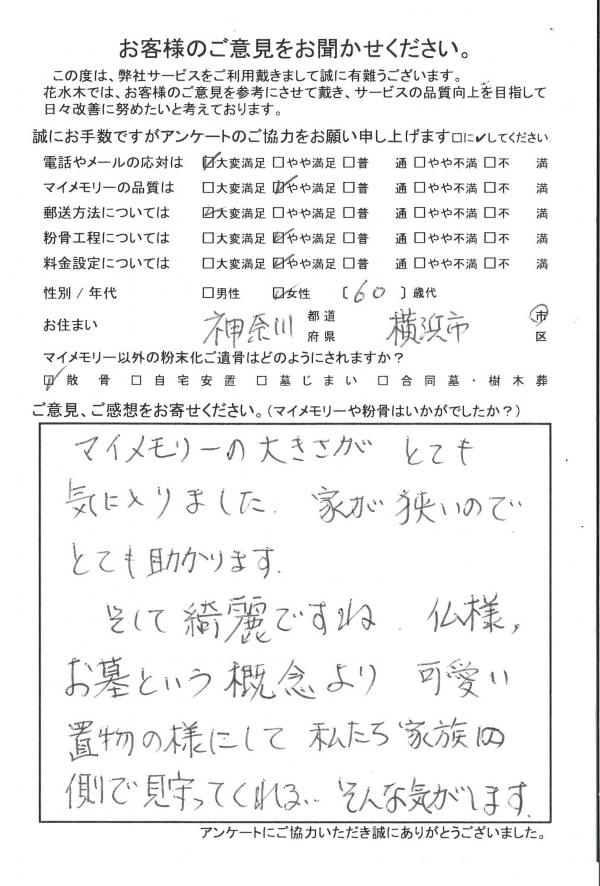 お客様のご意見をお聞かせください。
この度は、弊社サービスをご利用戴きまして誠に有難うございます。
花水木では、お客様のご意見を参考にさせて戴き、サービスの品質向上を目指して
日々改善に努めたいと考えております。
誠にお手数ですがアンケートのご協力をお願い申し上げます□に✔してください
電話やメールの応対は ☑大変満足 □やや満足 □普 通 □やや不満 □不 満
マイメモリーの品質は □大変満足 ☑やや満足 □普 通 □やや不満 □不 満
郵送方法については ☑大変満足 □やや満足 □普 通 □やや不満 □不 満
粉骨工程については □大変満足 ☑やや満足 □普 通 □やや不満 □不 満
料金設定については □大変満足 ☑やや満足 □普 通 □やや不満 □不 満
性別/年代 □男性 ☑女性 〔60〕歳代
お住まい 神奈川 都道府県 横浜市 市区
マイメモリー以外の粉末化ご遺骨はどのようにされますか？
☑散骨 □自宅安置 □墓じまい □合同墓・樹木葬
ご意見、ご感想をお寄せください。(マイメモリーや粉骨はいかがでしたか？)
マイメモリーの大きさが とても
気に入りました. 家が狭いので
とても助かります.
そして綺麗ですね. 仏様,
お墓という概念より 可愛い
置物の様にして 私たち家族の
側で見守ってくれる.. そんな気がします.
アンケートにご協力いただき誠にありがとうございました。